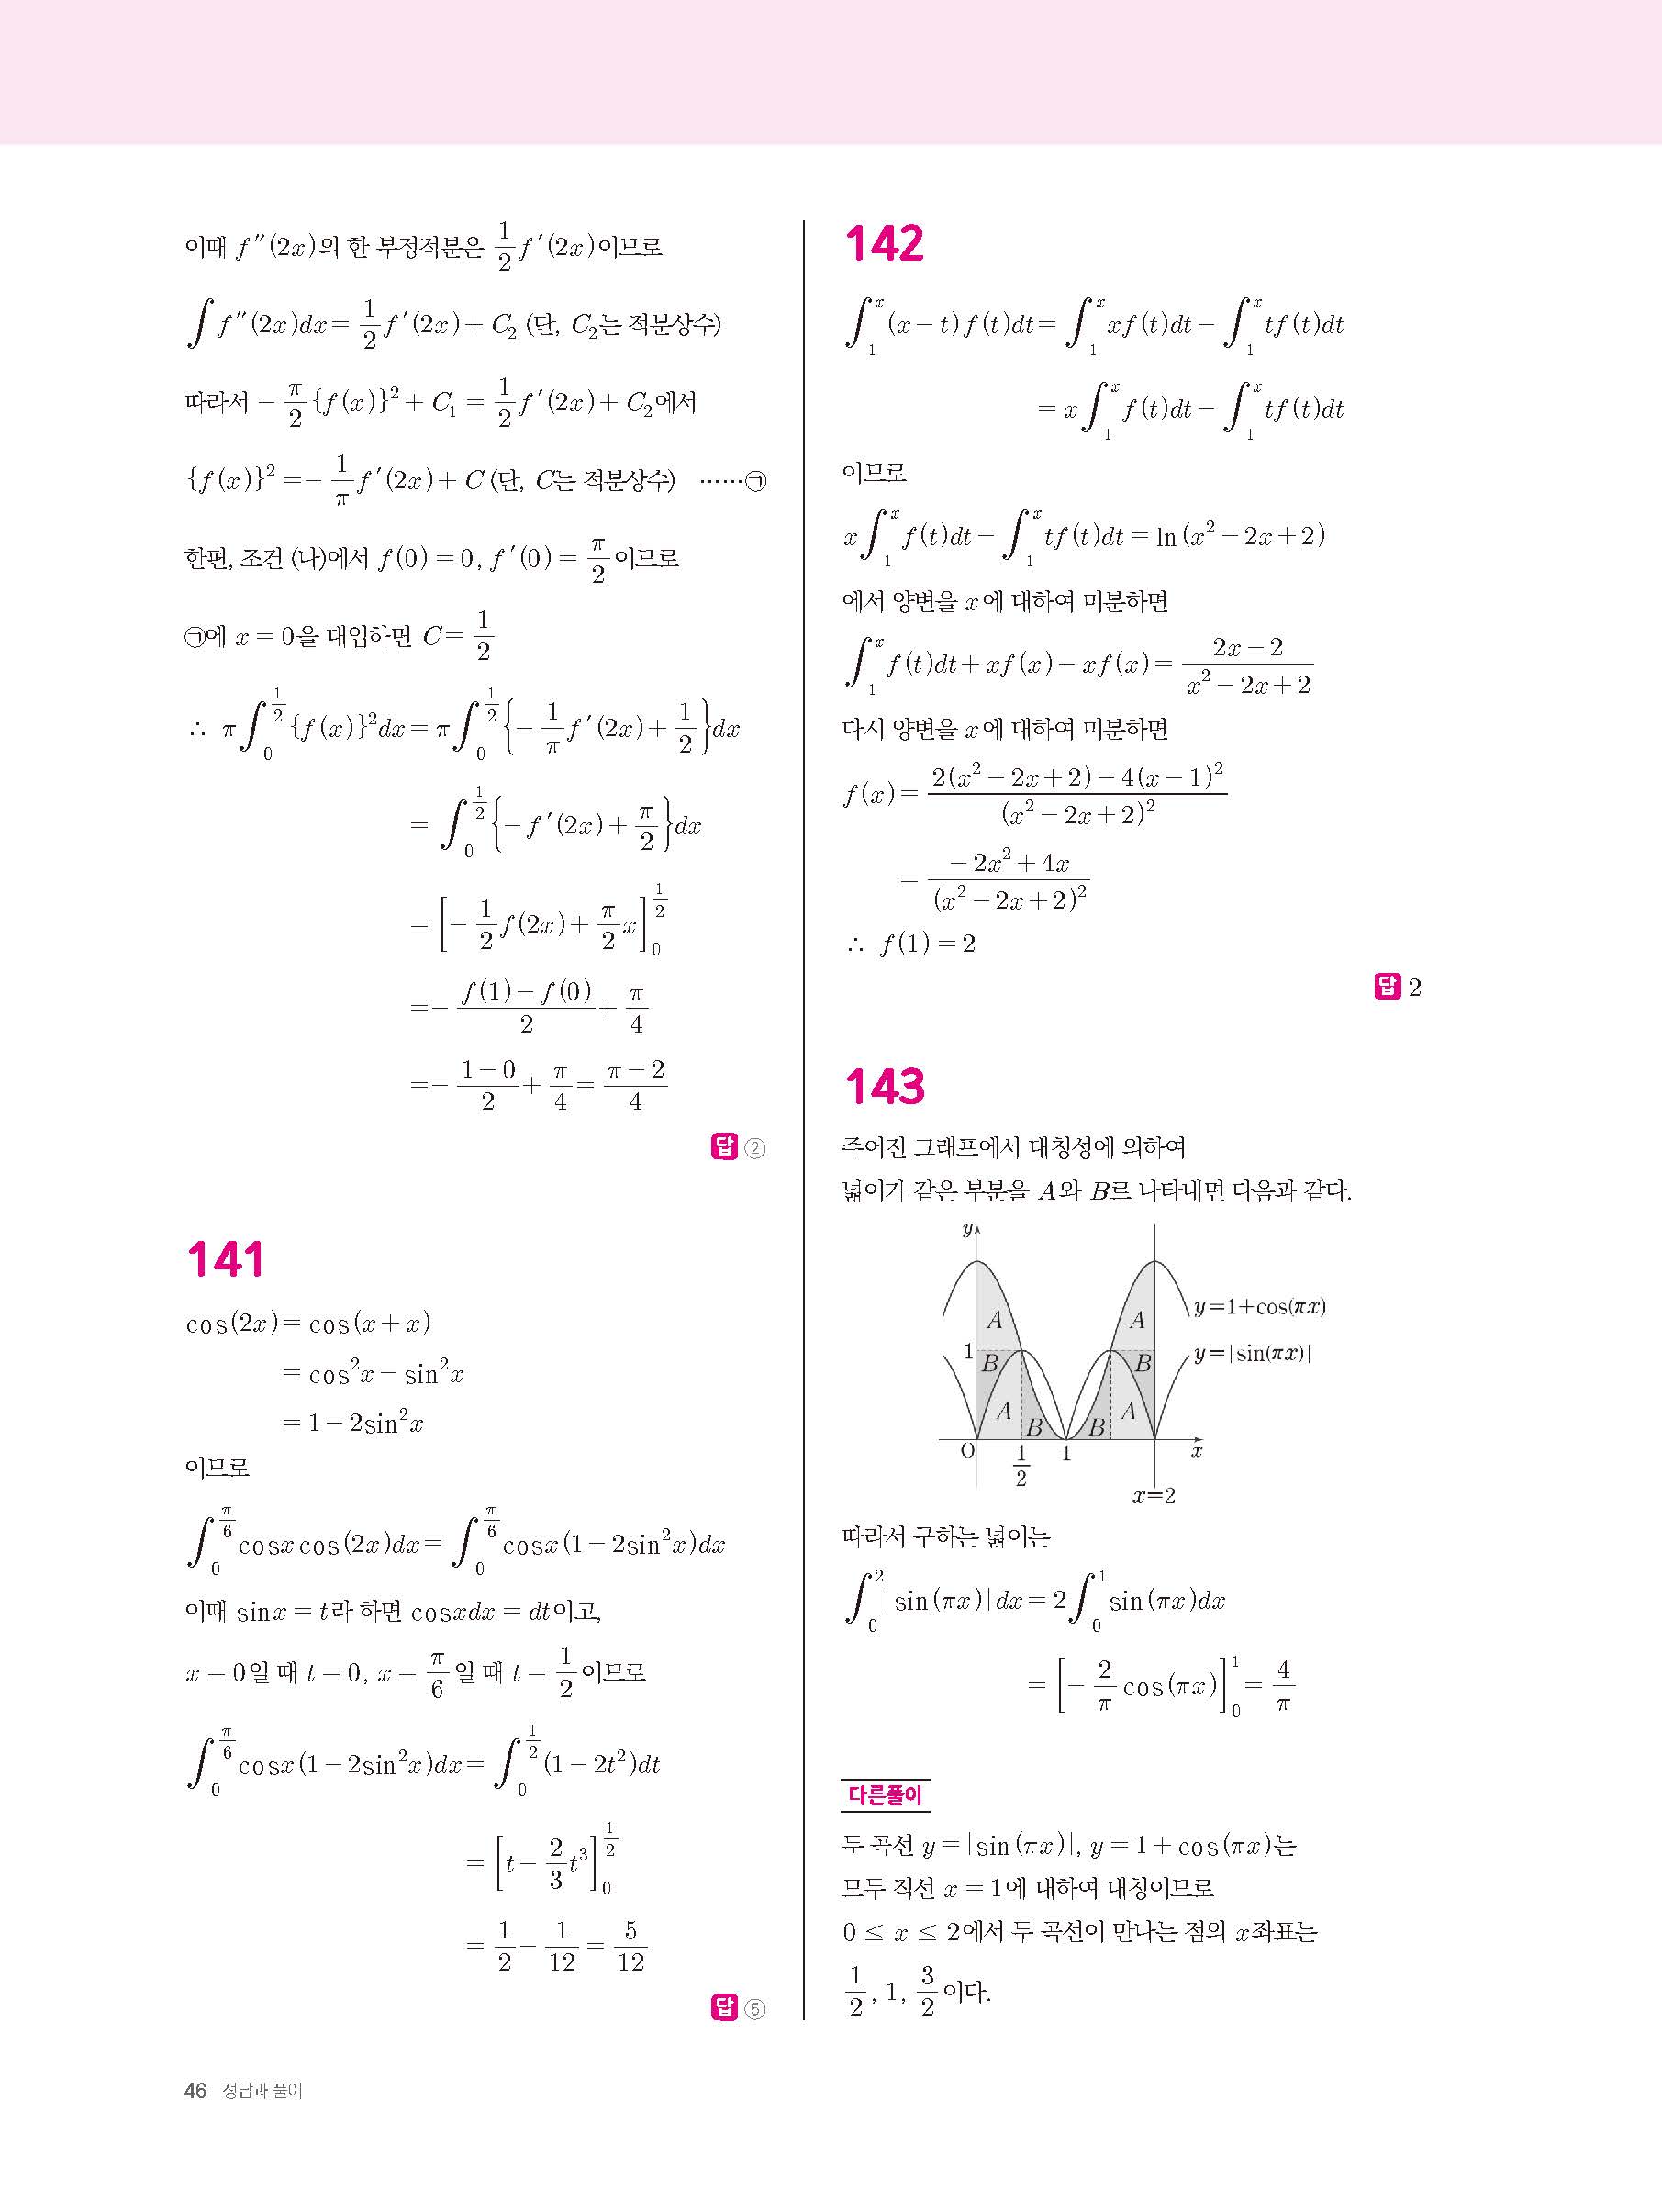 이때 f″(2x)의 한 부정적분은 1/2 f′(2x)이므로
∫f″(2x)dx = 1/2 f′(2x) + C₂ (단, C₂는 적분상수)
따라서 − π/2 {f(x)}² + C₁ = 1/2 f′(2x) + C₂에서
{f(x)}² = − 1/π f′(2x) + C (단, C는 적분상수) ……㉠
한편, 조건 (나)에서 f(0) = 0, f′(0) = π/2 이므로
㉠에 x = 0을 대입하면 C = 1/2
∴ π∫₀^(1/2) {f(x)}²dx = π∫₀^(1/2) {− 1/π f′(2x) + 1/2}dx
= ∫₀^(1/2) {−f′(2x) + π/2}dx
= [− 1/2 f(2x) + π/2 x]₀^(1/2)
= − (f(1) − f(0))/2 + π/4
= − (1 − 0)/2 + π/4 = (π − 2)/4
답 ②
141
cos(2x) = cos(x + x)
= cos²x − sin²x
= 1 − 2sin²x
이므로
∫₀^(π/6) cosxcos(2x)dx = ∫₀^(π/6) cosx(1 − 2sin²x)dx
이때 sinx = t라 하면 cosxdx = dt이고,
x = 0일 때 t = 0, x = π/6 일 때 t = 1/2 이므로
∫₀^(π/6) cosx(1 − 2sin²x)dx = ∫₀^(1/2) (1 − 2t²)dt
= [t − 2/3 t³]₀^(1/2)
= 1/2 − 1/12 = 5/12
답 ⑤
142
∫₁^x (x − t)f(t)dt = ∫₁^x xf(t)dt − ∫₁^x tf(t)dt
= x∫₁^x f(t)dt − ∫₁^x tf(t)dt
이므로
x∫₁^x f(t)dt − ∫₁^x tf(t)dt = ln(x² − 2x + 2)
에서 양변을 x에 대하여 미분하면
∫₁^x f(t)dt + xf(x) − xf(x) = (2x − 2)/(x² − 2x + 2)
다시 양변을 x에 대하여 미분하면
f(x) = (2(x² − 2x + 2) − 4(x − 1)²)/(x² − 2x + 2)²
= (−2x² + 4x)/(x² − 2x + 2)²
∴ f(1) = 2
답 2
143
주어진 그래프에서 대칭성에 의하여
넓이가 같은 부분을 A와 B로 나타내면 다음과 같다.
y
A A y=1+cos(πx)
1 B B y=|sin(πx)|
A B B A
O 1/2 1 x
x=2
따라서 구하는 넓이는
∫₀² |sin(πx)|dx = 2∫₀¹ sin(πx)dx
= [− 2/π cos(πx)]₀¹ = 4/π
다른풀이
두 곡선 y = |sin(πx)|, y = 1 + cos(πx)는
모두 직선 x = 1에 대하여 대칭이므로
0 ≤ x ≤ 2에서 두 곡선이 만나는 점의 x좌표는
1/2, 1, 3/2 이다.
46 정답과 풀이